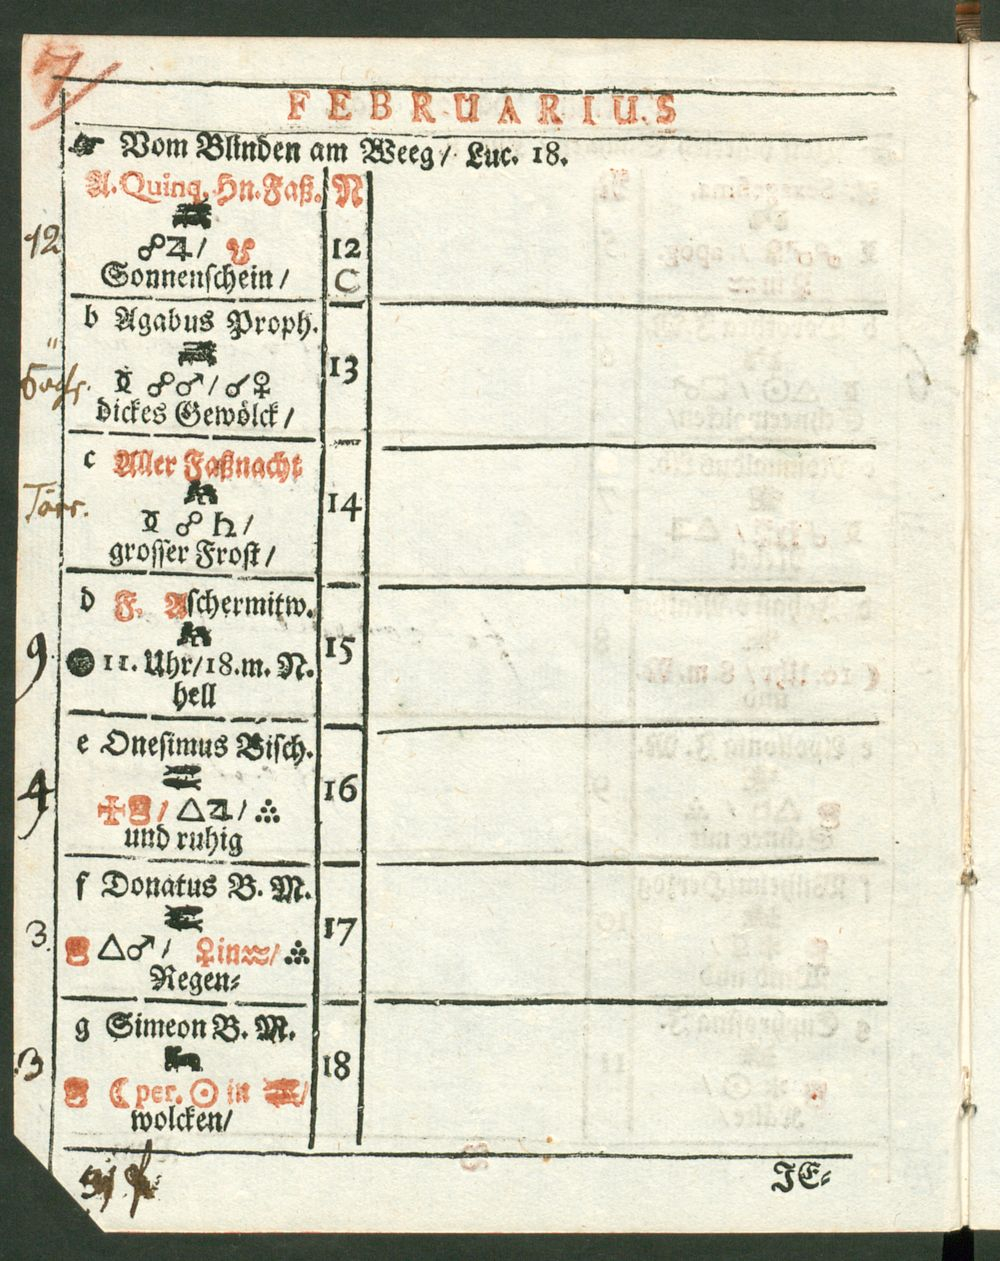 7
FEBRUARIUS
☞ Vom Blinden am Weeg/ Luc. 18.
A. Quinq. Hn. Faß. N
12 ☍♃/ ☋ 12
Sonnenschein/ C
b Agabus Proph.
☿ ☍♂/☌♀ 13
dickes Gewölck/
c Aller Faßnacht
☿ ☍ ♄/ 14
grosser Frost/
d F. Aschermitw.
9 ● 11. Uhr/18.m. N. 15
hell
e Onesimus Bisch.
4 △♃/ ∴ 16
und ruhig
f Donatus B. M.
3. △♂/ ♀in♒/ ∴ 17
Regen⸗
g Simeon B. M.
3 ☾ per. ☉ in ♓/ 18
wolcken/
JE⸗